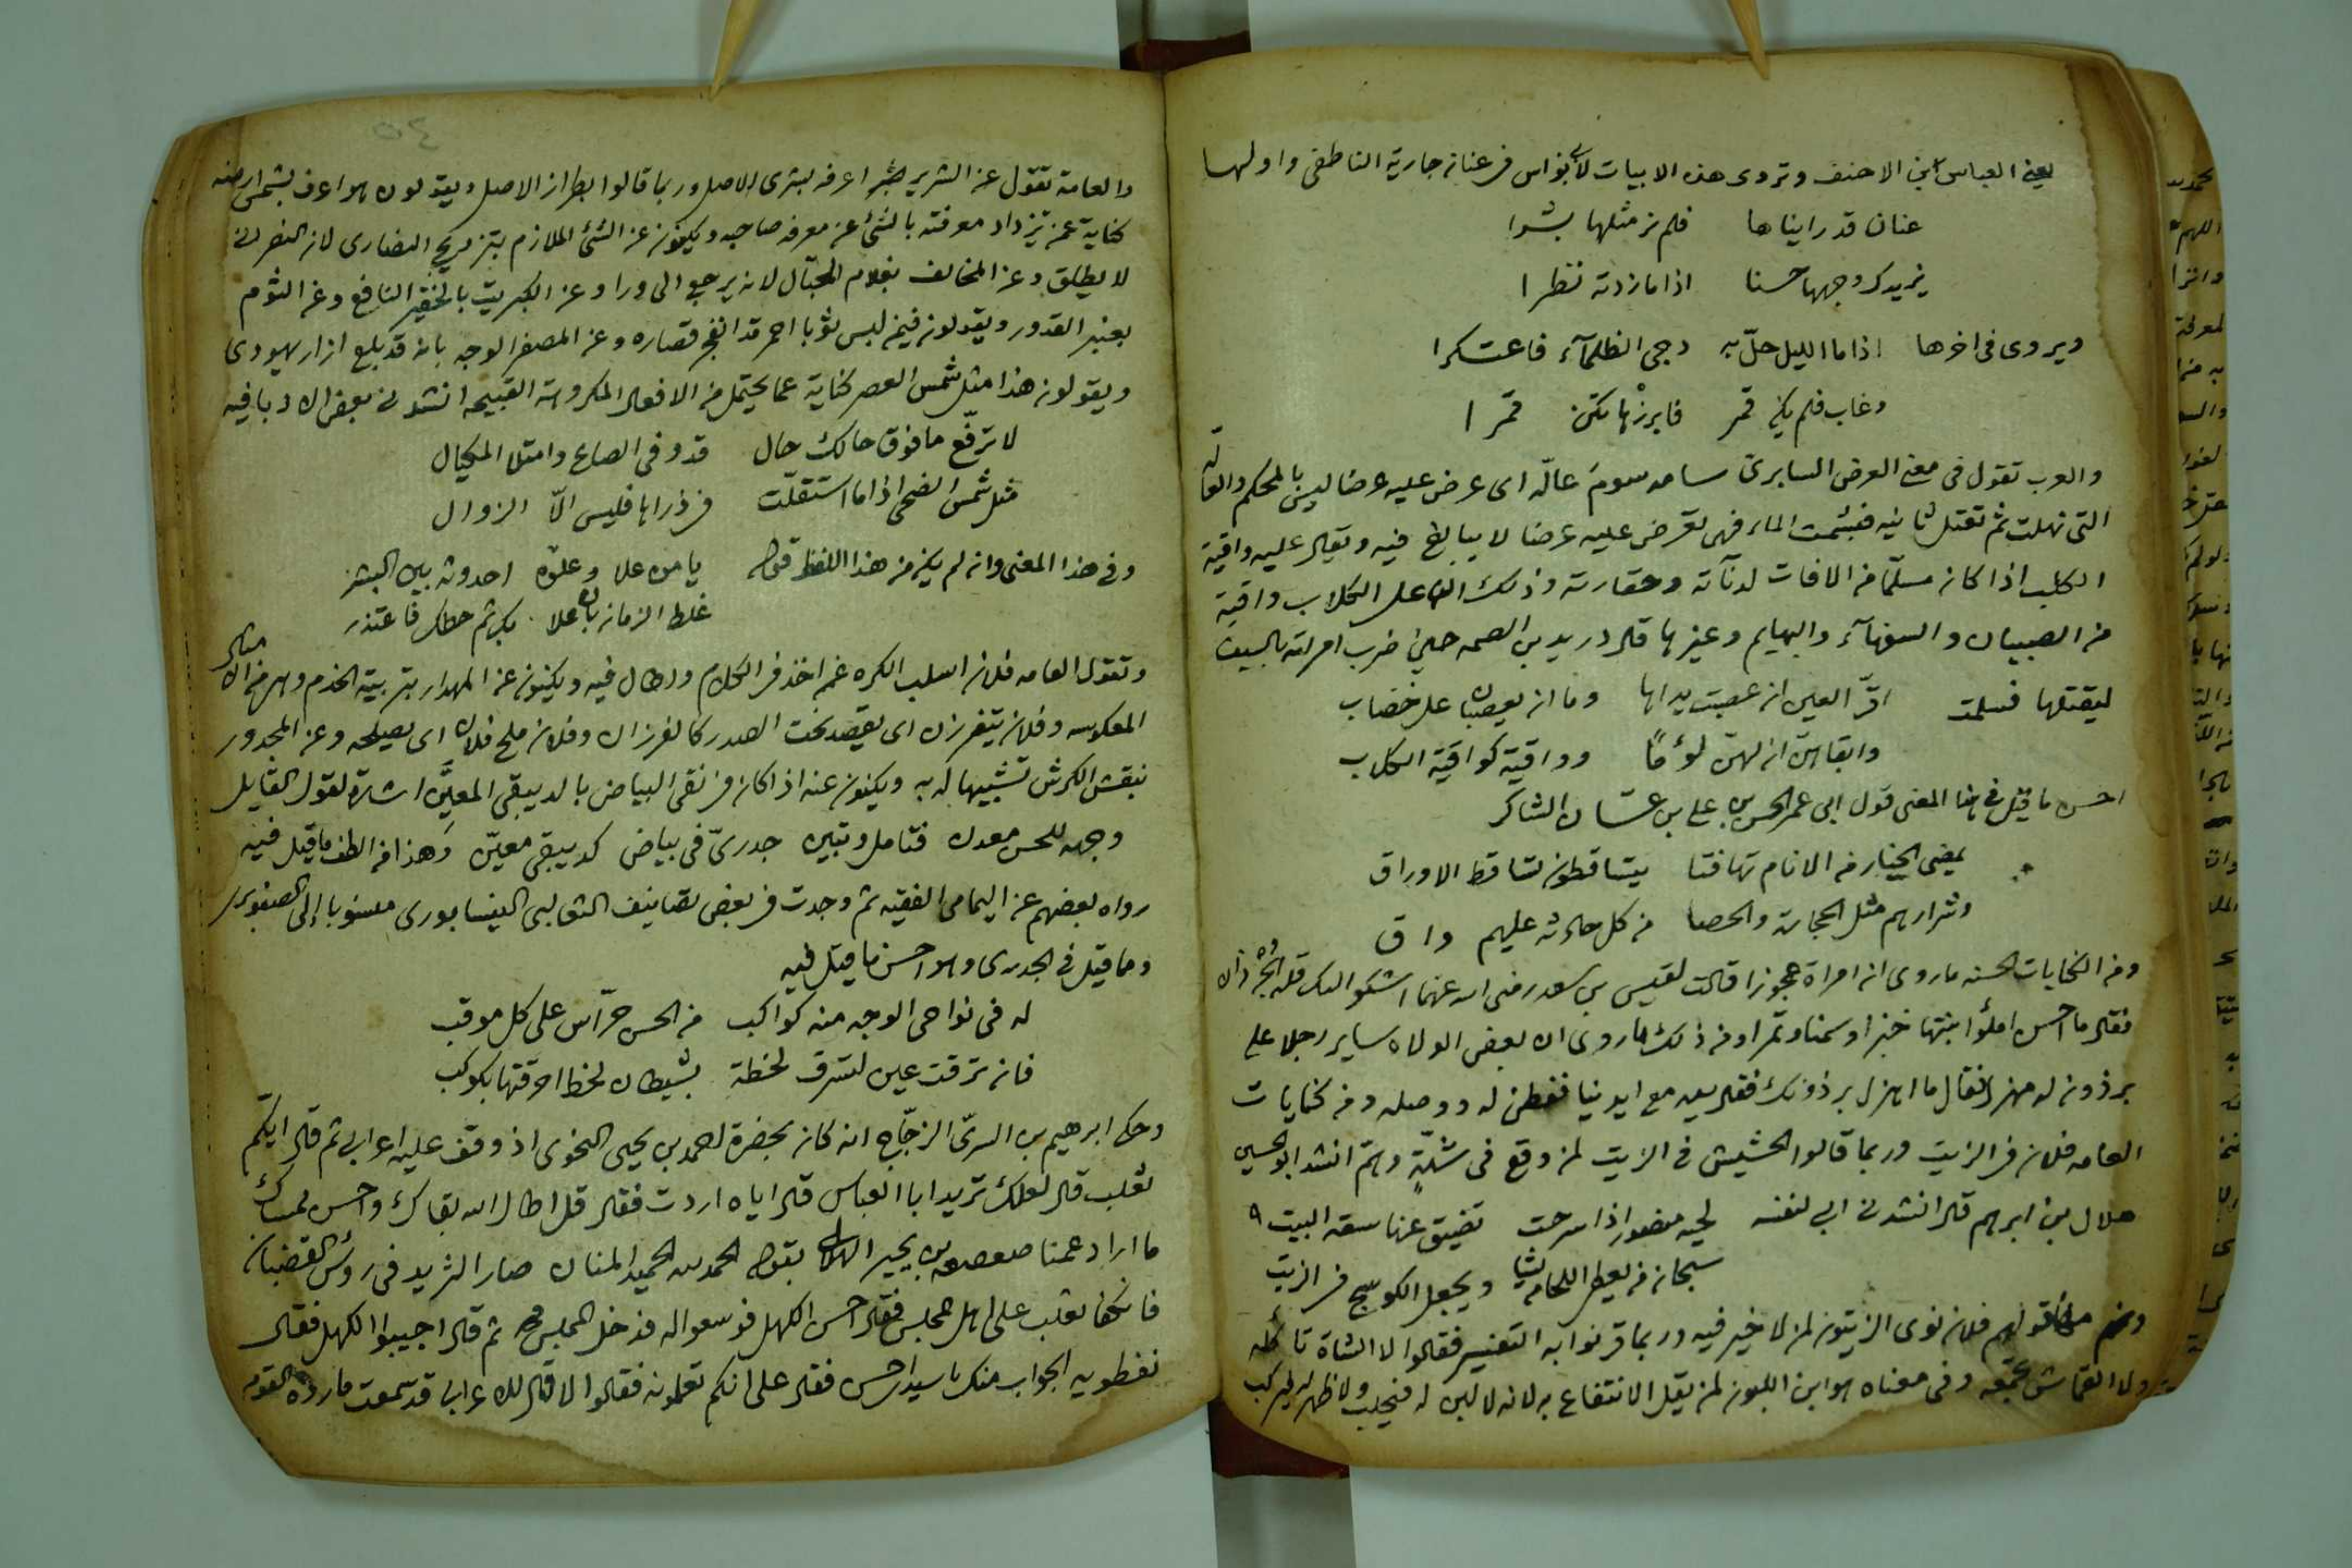 يعنى العباس ابن الاحنف وتروى هذه الابيات لابى نواس فى عنان جارية الناطفى واولها
عنان قد راينا ها فلم نر مثلها بشرا
يزيدك وجهها حسنا اذا ما زدته نظرا
ويروى فى اخرها اذا ما الليل حلّ به دجى الظلمآء فاعتكرا
وغاب فلم يكن قمر فابرزها تكن قمرا
والعرب تقول فى معنى العرض السابرى سامه سوم عالّه اى عرض عليه عرضا ليس بالمحكم والعالّه
التى نهلت ثم تعتل ثانيه فبشمت الماء فهى تعرض عليه عرضا لا يبالغ فيه ويقال عليه واقية
الكلب اذا كان مسلّما من الافات لدنآته وحقارته وذلك ان على الكلاب واقية
من الصبيان والسفهآء والبهايم وغيرها قال دريد بن الصمه حين ضرب امراته بالسيف
ليقتلها فسلمت اقرّ العين ان عصبت يداها وما ان يعصبان على خضاب
وابقاهن ان لهن لؤمًا وواقية كواقية الكلاب
احسن ما قيل فى هذا المعنى قول ابى عمر الحسن بن على بن غسان الشاكر
يمضى الخيار من الانام تهافتا يتساقطون تساقط الاوراق
وشرارهم مثل الحجارة والحصا من كل حادثة عليهم واق
ومن الكنايات الحسنه ما روى ان امراة عجوزا قالت لقيس بن سعد رضى الله عنهما اشكو اليك قلة الجرذان
فقال ما احسن املؤا بيتها خبزا وسمنا وتمرا ومن ذلك ما روى ان بعض الولاه ساير رجلا على
برذون له مهزول فقال ما اهزل برذونك فقال يده مع ايدينا ففطن له ووصله ومن كنايات
العامه فلان فى الزيت وربما قالوا الحشيش فى الزيت لمن وقع فى شدّةٍ وهمّ انشد ابو الحسين
هلال بن ابرهيم قال انشدنى ابى لنفسه لحيه منصور اذا سرحت تضيق عنها سعة البيت
سبحانه من يعطى اللحا من يشا ويجعل الكوسج فى الزيت
ومنهم من قولهم فلان نوى الزيتون لمن لا خير فيه وربما قرنوا به التفسير فقالوا لا الشاة تاكله
ولا القماش تجمعه وفى معناه هو ابن اللبون لمن يقل الانتفاع به لانه لا لبن له فيحلب ولا ظهر له فيركب
والعامة تقول عن الشرير شبرا عرفه بشرى الاصل وربما قالوا بطراز الاصل ويقولون هو اعرف بشمس ارضه
كناية عمن تزداد معرفته بالشئ عن معرفه صاحبه ويكنون عن الشئ الملازم بتزويج النصارى لان النصرانى
لا يطلق وعن المخالف بغلام الحبّال لانه يرجع الى ورا وعن الكبريت بالخفير النافع وعن الثوم
بعنبر القدور ويقولون فيمن لبس ثوبا احمر قد انفجر قصاره وعن المصفر الوجه بانه قد بلع ازار يهودى
ويقولون هذا مثل شمس العصر كناية عما يحتمل من الافعال المكروهة القبيحه انشدنى بعض الادبا فيه
لا ترفّع ما فوق حالك حال قد وفى الصاع وامتلا المكيال
مثل شمس الضحى اذا ما استقلّت فى ذراها فليس الّا الزوال
وفى هذا المعنى وان لم يكن من هذا اللفظ قوله يا من علا وعلوّه احدوثه بين البشر
غلط الزمان بان علا بك ثم حطك فاعتذر
وتقول العامه فلان اسلب الكره عمن اخذ فى الكلام واطال فيه ويكنون عن المهدار بتربية الخدم وهى من الامثال
المعكوسه وفلان يتفرزن اى يقصد تحت الصدر كالفرزان وفلان ملح فلان اى يصلحه وعن المجدور
بنقش الكرش تشبيها له به ويكنون عنه اذا كان فى نقى البياض بالدبيقى المعيّن اشارة لقول القايل
وجهه للحسن معدن فتامل وتبين جدرىّ فى بياض كدبيقى معيّن وهذا من الطف ما قيل فيه
رواه بعضهم عن اليمامى الفقيه ثم وجدت فى بعض تصانيف الثعالبى النيسابورى منسوبا إلى الصنوبرى
ومما قيل فى الجدرى وهو احسن ما قيل فيه
له فى نواحى الوجه منه كواكب من الحسن حرّاس على كل موقب
فان ترقت عين لتسرق لحظة بشيطان لحظ احرقتها بكوكب
وحكى ابرهيم بن السرىّ الزجّاج انه كان بحضرة احمد بن يحيى النحوى اذ وقف عليه اعرابى ثم قال ايكم
ثعلب قال لعلك تريد ابا العباس قال اياه اردت فقال قل اطال الله بقاك واحسن
ما اراد عمنا صعصعه بن بحير الهلالى بقوله الحمد لله الحميد المنان صار الثريد فى رؤس القضبان
فانكفا ثعلب على اهل المجلس فقال احسن الكهل فوسعوا له فدخل المجلس ثم قال اجيبوا الكهل فقال
نفطويه الجواب منك يا سيدى احسن فقال على انكم تعلمونه فقالوا لا قال للاعرابى قد سمعت ما ردّه القوم